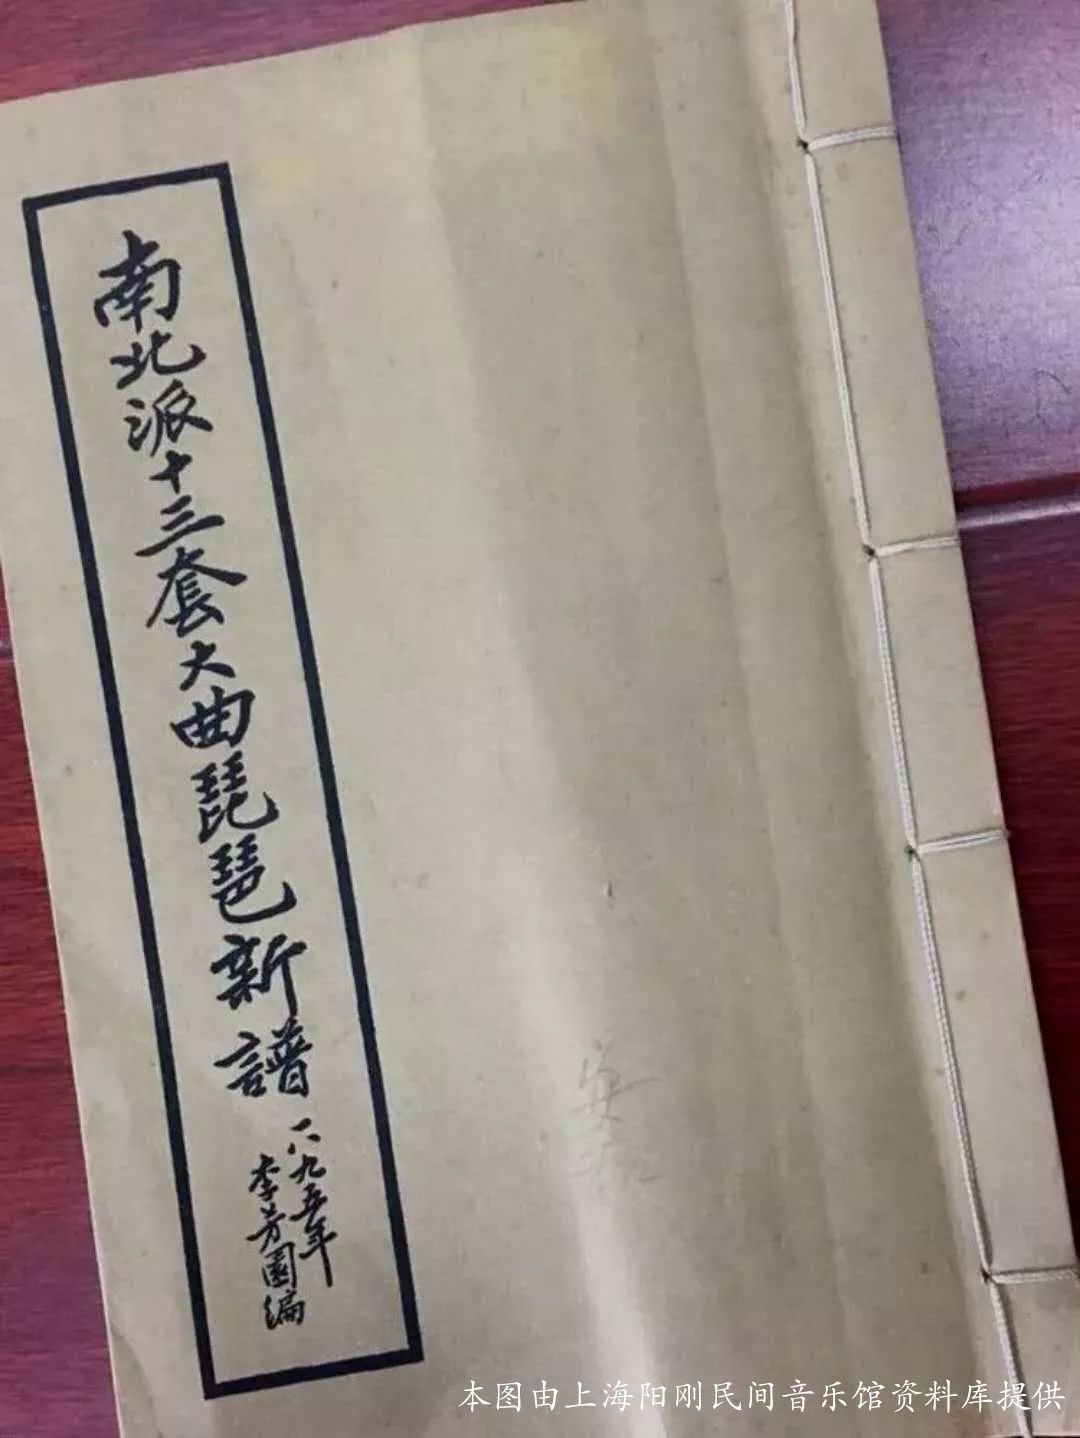 南北派十三套大曲琵琶新譜
一八九五年
李芳園編
本图由上海阳刚民间音乐馆资料库提供